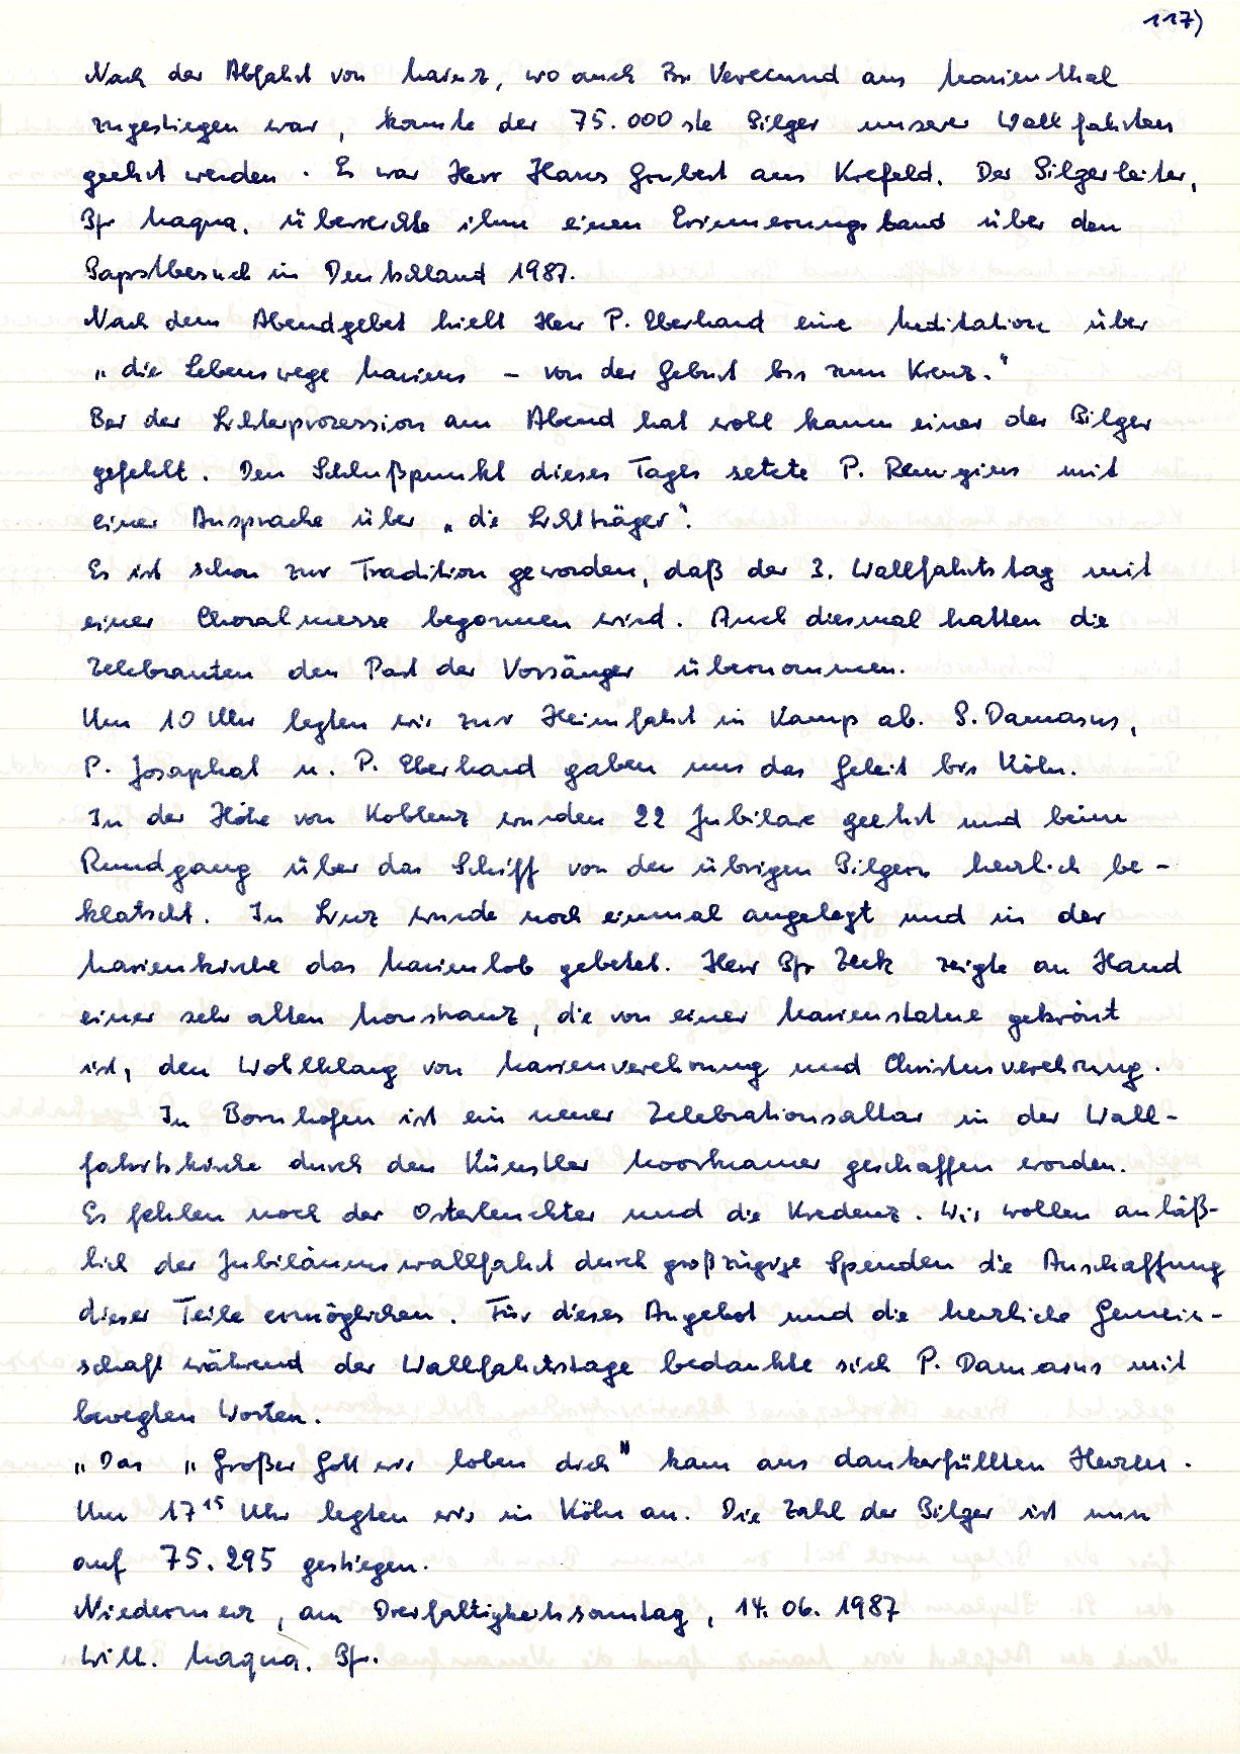 117)
Nach der Abfahrt von Mainz, wo auch Br. Verecund aus Marienthal
zugestiegen war, konnte der 75.000 ste Pilger unserer Wallfahrten
geehrt werden. Es war Herr Hans Goubert aus Krefeld. Der Pilgerleiter,
Pfr Maqua. überreichte ihm einen Erinnerungsband über den
Papstbesuch in Deutschland 1987.
Nach dem Abendgebet hielt Herr P. Eberhard eine Meditation über
„die Lebenswege Mariens – von der Geburt bis zum Kreuz."
Bei der Lichterprozession am Abend hat wohl kaum einer der Pilger
gefehlt. Den Schlußpunkt dieses Tages setzte P. Remigius mit
einer Ansprache über „die Lichtträger".
Es ist schon zur Tradition geworden, daß der 3. Wallfahrtstag mit
einer Choralmesse begonnen wird. Auch diesmal hatten die
Zelebranten den Part der Vorsänger übernommen.
Um 10 Uhr legten wir zur Heimfahrt in Kamp ab. P. Damasus,
P. Josaphat u. P. Eberhard gaben uns das Geleit bis Köln.
In der Höhe von Koblenz wurden 22 Jubilare geehrt und beim
Rundgang über das Schiff von den übrigen Pilgern herzlich be-
klatscht. In Linz wurde noch einmal angelegt und in der
Marienkirche das Marienlob gebetet. Herr Pfr Zeck zeigte an Hand
einer sehr alten Monstranz, die von einer Marienstatue gekrönt
ist, den Wohlklang von Marienverehrung und Christusverehrung.
In Bornhofen ist ein neuer Zelebrationsaltar in der Wall-
fahrtskirche durch den Künstler Moorkamer geschaffen worden.
Es fehlen noch der Osterleuchter und die Kredenz. Wir wollen anläß-
lich der Jubiläumswallfahrt durch großzügige Spenden die Anschaffung
dieser Teile ermöglichen. Für dieses Angebot und die herzliche Gemein-
schaft während der Wallfahrtstage bedankte sich P. Damasus mit
bewegten Worten.
„Das „Großer Gott wir loben dich" kam aus dankerfüllten Herzen.
Um 17 15 Uhr legten wir in Köln an. Die Zahl der Pilger ist nun
auf 75.295 gestiegen.
Niedermerz, am Dreifaltigkeitssonntag, 14.06.1987
Will. Maqua. Pfr.